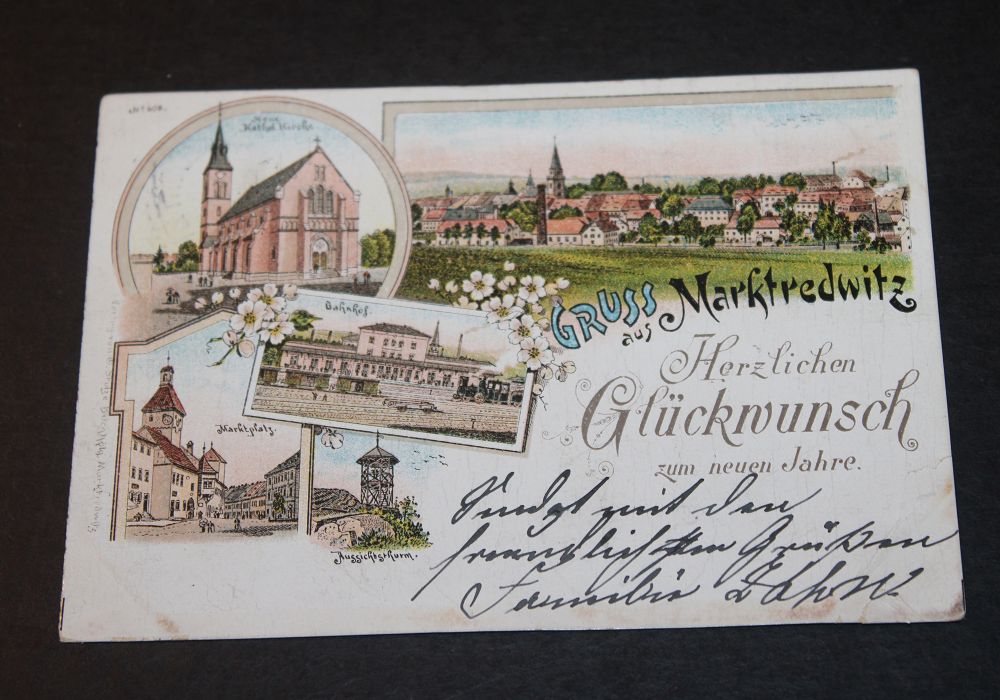 No 608.
Neue
Kathol. Kirche
GRUSS
aus
Marktredwitz
Bahnhof.
Herzlichen
Glückwunsch
zum neuen Jahre.
Marktplatz.
Aussichtsthurm.
Sendet mit den
freundlichsten Grüßen
Familie